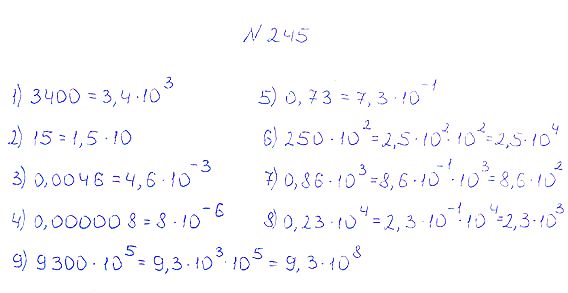 N 245
1) 3400 = 3,4 · 10³
2) 15 = 1,5 · 10
3) 0,0046 = 4,6 · 10⁻³
4) 0,000008 = 8 · 10⁻⁶
5) 0,73 = 7,3 · 10⁻¹
6) 250 · 10² = 2,5 · 10² · 10² = 2,5 · 10⁴
7) 0,86 · 10³ = 8,6 · 10⁻¹ · 10³ = 8,6 · 10²
8) 0,23 · 10⁴ = 2,3 · 10⁻¹ · 10⁴ = 2,3 · 10³
9) 9300 · 10⁵ = 9,3 · 10³ · 10⁵ = 9,3 · 10⁸